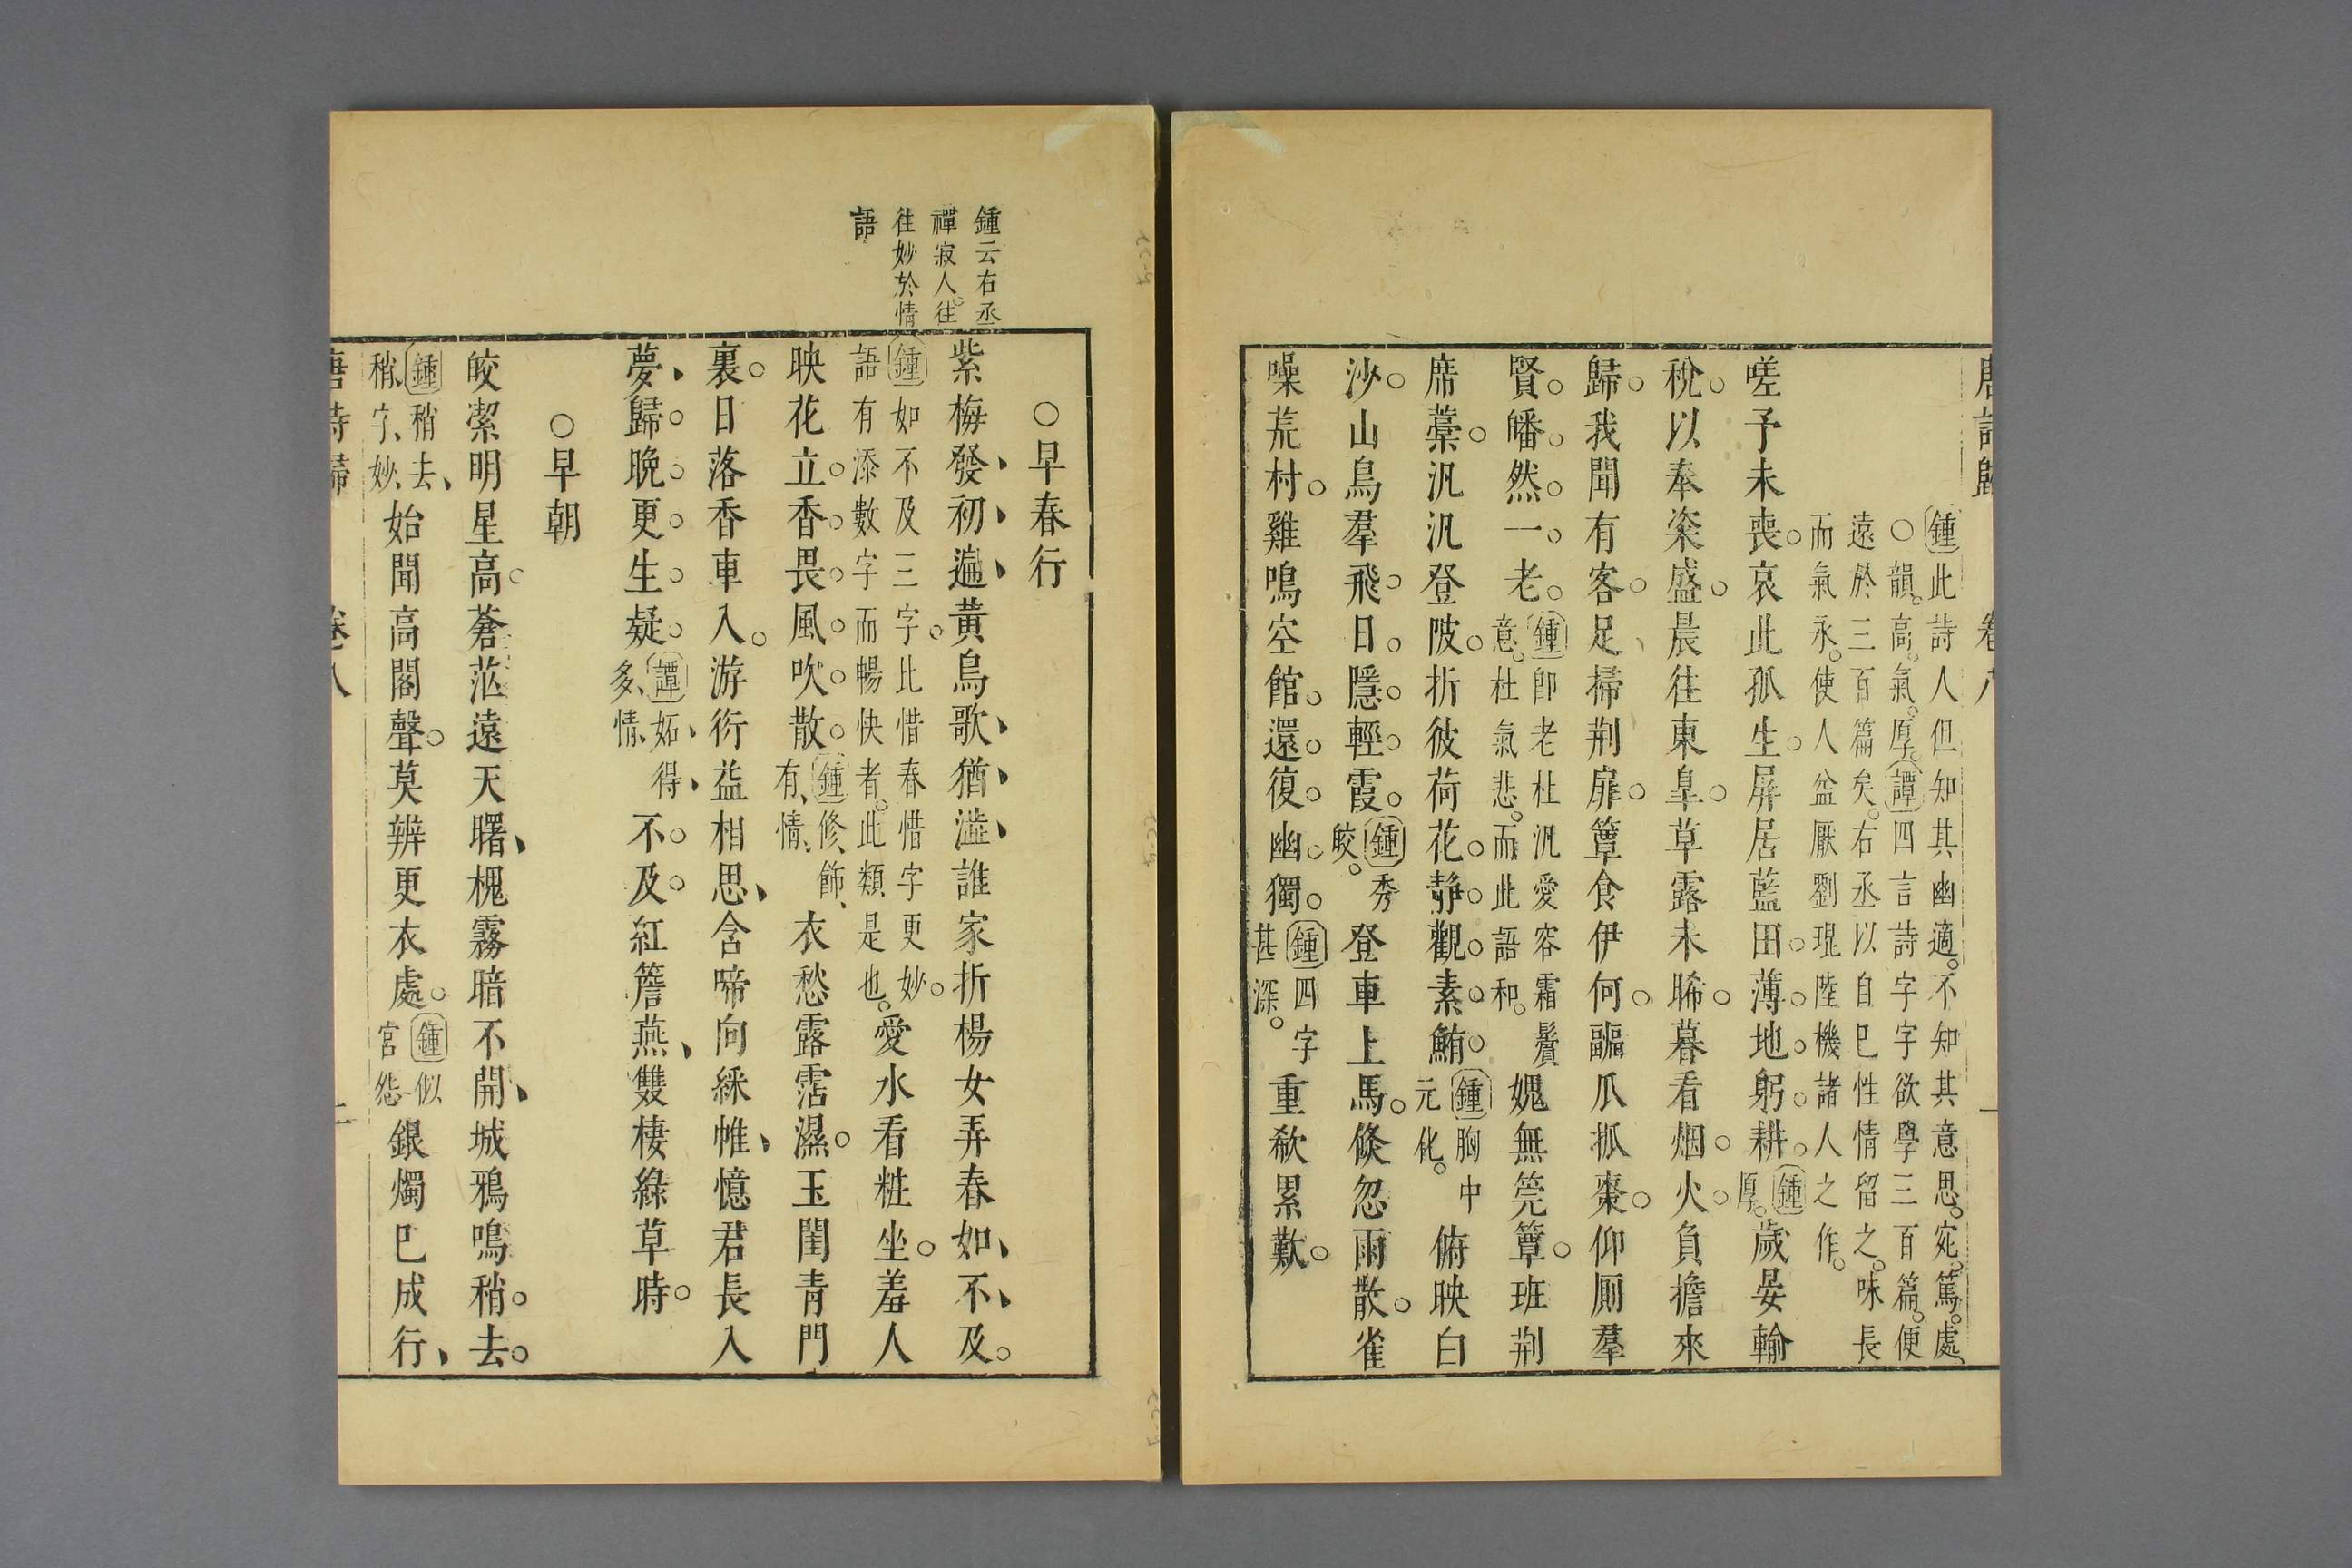 唐詩歸 卷八 一
鍾此詩人但知其幽適。不知其意思。宛。篤。處、
○韻。高。氣。厚。譚四言詩字字欲學三百篇。便
遠於三百篇矣。右丞以自巳性情留之。味長
而氣永。使人益厭劉琨陸機諸人之作。
嗟予未喪。哀此孤生。屏居藍田。薄。地。躬。耕。鍾厚。歲晏輸
稅。以奉粢盛。晨往東臯。草露未晞。暮看烟。火。負擔來
歸。我聞有客。足掃荆扉。簞食伊何。疈瓜抓棗。仰厠羣
賢。皤。然。一。老。鍾卽老杜汎愛容霜鬢意。杜氣悲。而此語和。媿無筦簟。班荆
席藁。汎汎登陂。折彼荷花。靜。觀。素。鮪。鍾胸中元化。俯映白
沙。山鳥羣飛。日。隱。輕。霞。鍾秀皎。登車上馬。倏忽雨散。雀
噪荒村。雞鳴空館。還。復。幽。獨。鍾四字甚深。重欷累歎。
鍾云右丞
禪寂人。往
往妙於情
語
○早春行
紫梅發、初、遍、黃鳥歌、猶、澁、誰家折楊女弄春如、不、及。
鍾如不及三字。比惜春惜字更妙。
語有添數字而暢快者。此類是也。愛水看粧坐。羞人
映花立。香。畏。風。吹。散。鍾修、飾、有、情、衣愁露霑濕。玉閨青門
裏。日落香車入。游衍益相思、含啼向綵帷、憶君長入
夢、歸。晚。更。生。疑。譚妬、得、多、情、不。及。紅簷燕、雙棲綠草時。
○早朝
皎潔明星高。蒼茫遠天曙、槐霧暗不開、城鴉鳴稍。去。
鍾稍去、稍、字、妙、始聞高閣聲。莫辨更衣處。鍾似宮怨銀燭巳成行、
唐詩歸 卷八